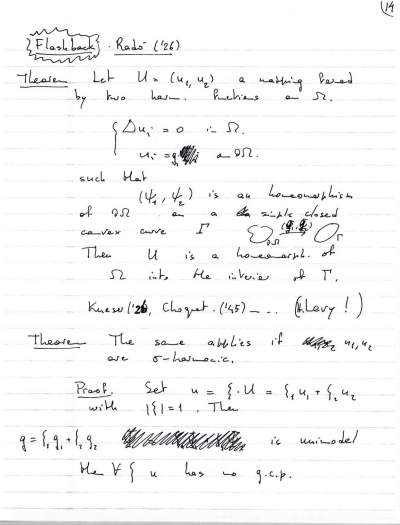 14
Flashback . Radó ('26)
Theorem Let U = (u₁, u₂) a mapping formed
by two harm. functions on Ω.
Δuᵢ = 0 in Ω
uᵢ = gᵢ on ∂Ω.
such that
(ψ₁, ψ₂) is an homeomorphism
of ∂Ω on a simple closed
convex curve Γ
∂Ω (g₁, g₂) Γ
Then U is a homeomorph. of
Ω into the interior of Γ.
Kneser '26, Choquet ('45) - . . . (H. Levy !)
Theorem The same applies if u₁, u₂
are σ-harmonic.
Proof. Set u = ξ · U = ξ₁ u₁ + ξ₂ u₂
with |ξ| = 1 . Then
g = ξ₁ g₁ + ξ₂ g₂ is unimodal
then ∀ ξ u has no g.c.p.